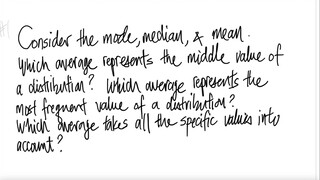 Consider the mode, median, & mean.
Which average represents the middle value of
a distribution? Which average represents the
most frequent value of a distribution?
Which average takes all the specific values into
account?